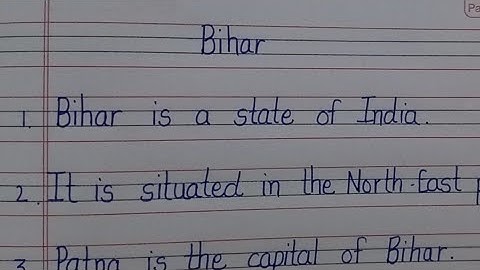 Bihar
1. Bihar is a state of India.
2. It is situated in the North-East
3. Patna is the capital of Bihar.